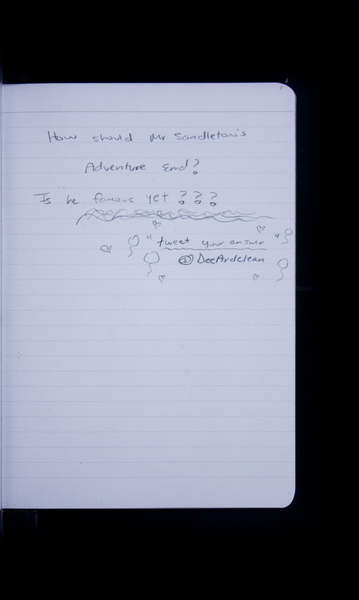 How should Mr Sandleton's
Adventure End?
Is he famous yet ???
"tweet your answer"
@ DeeArdclean